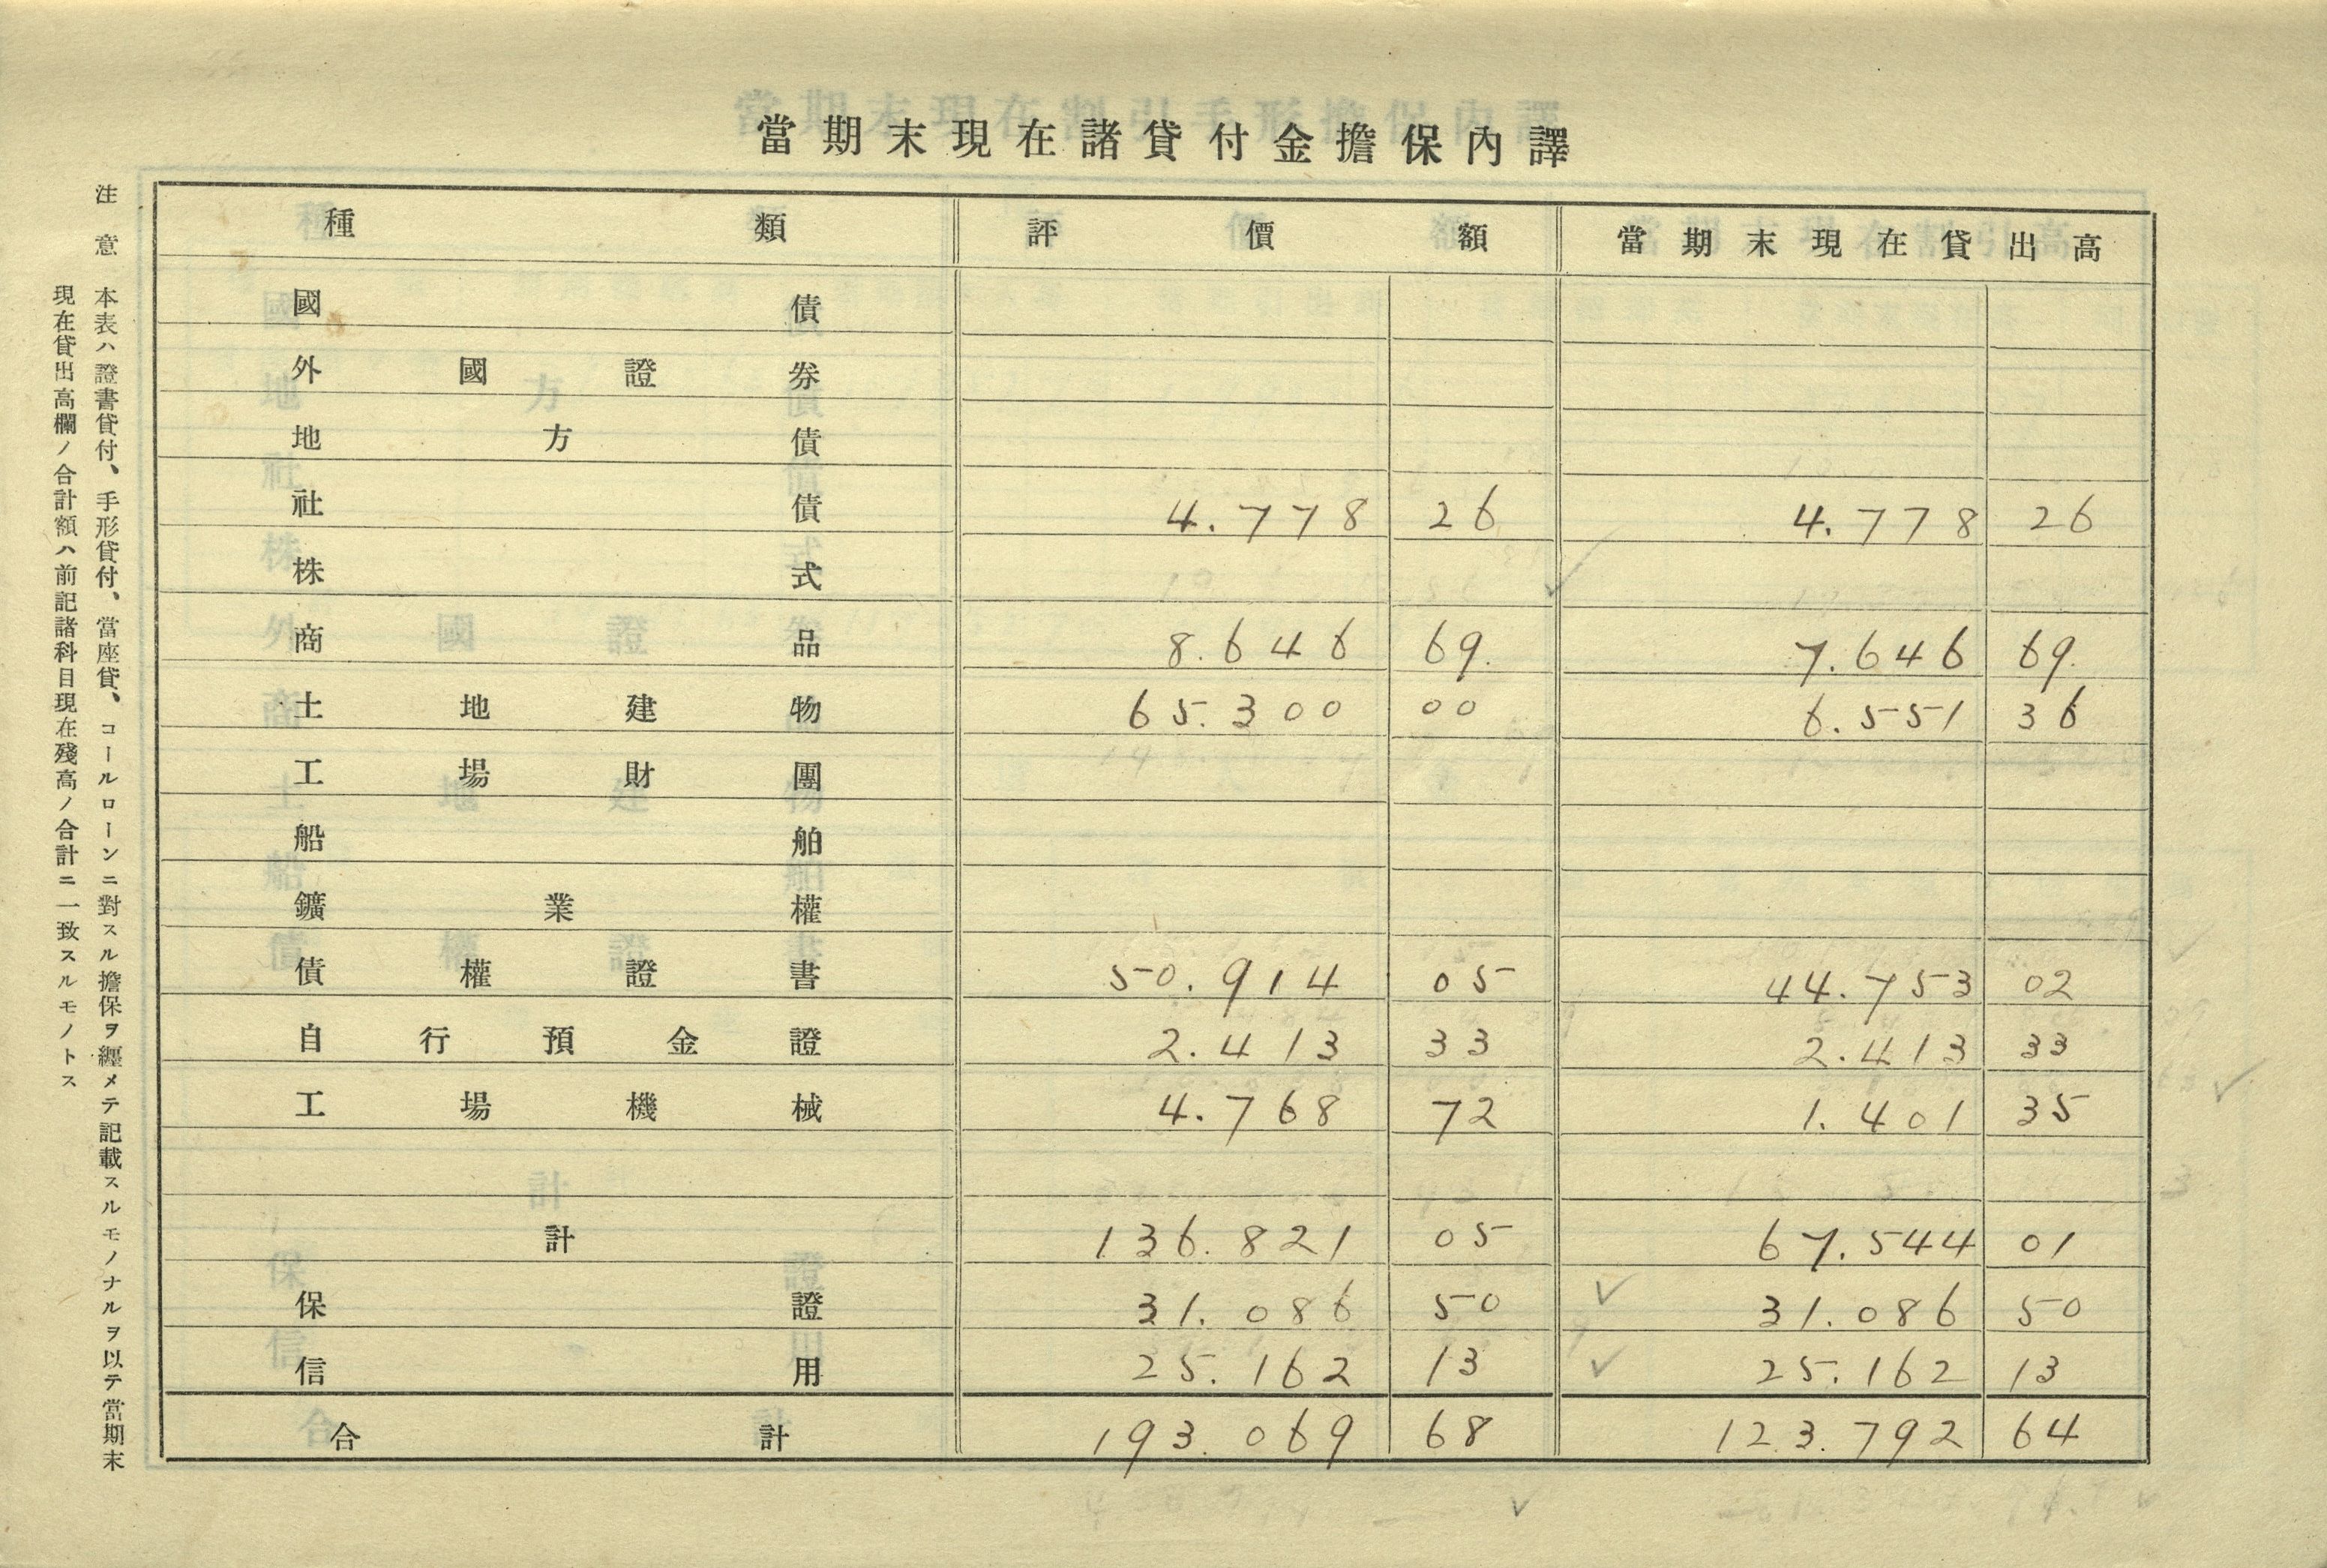 當期末現在諸貸付金擔保內譯
種類 評價額 當期末現在貸出高
國債
外國證券
地方債
社債 4.778 26 4.778 26
株式
商品 8.646 69. 7.646 69.
土地建物 65.300 00 6.551 36
工場財團
船舶
鑛業權
債權證書 50.914 05 44.753 02
自行預金證 2.413 33 2.413 33
工場機械 4.768 72 1.401 35
計 136.821 05 67.544 01
保證 31.086 50 31.086 50
信用 25.162 13 25.162 13
合計 193.069 68 123.792 64
注意 本表ハ證書貸付、手形貸付、當座貸、コールローンニ對スル擔保ヲ纒メテ記載スルモノナルヲ以テ當期末
現在貸出高欄ノ合計額ハ前記諸科目現在殘高ノ合計ニ一致スルモノトス